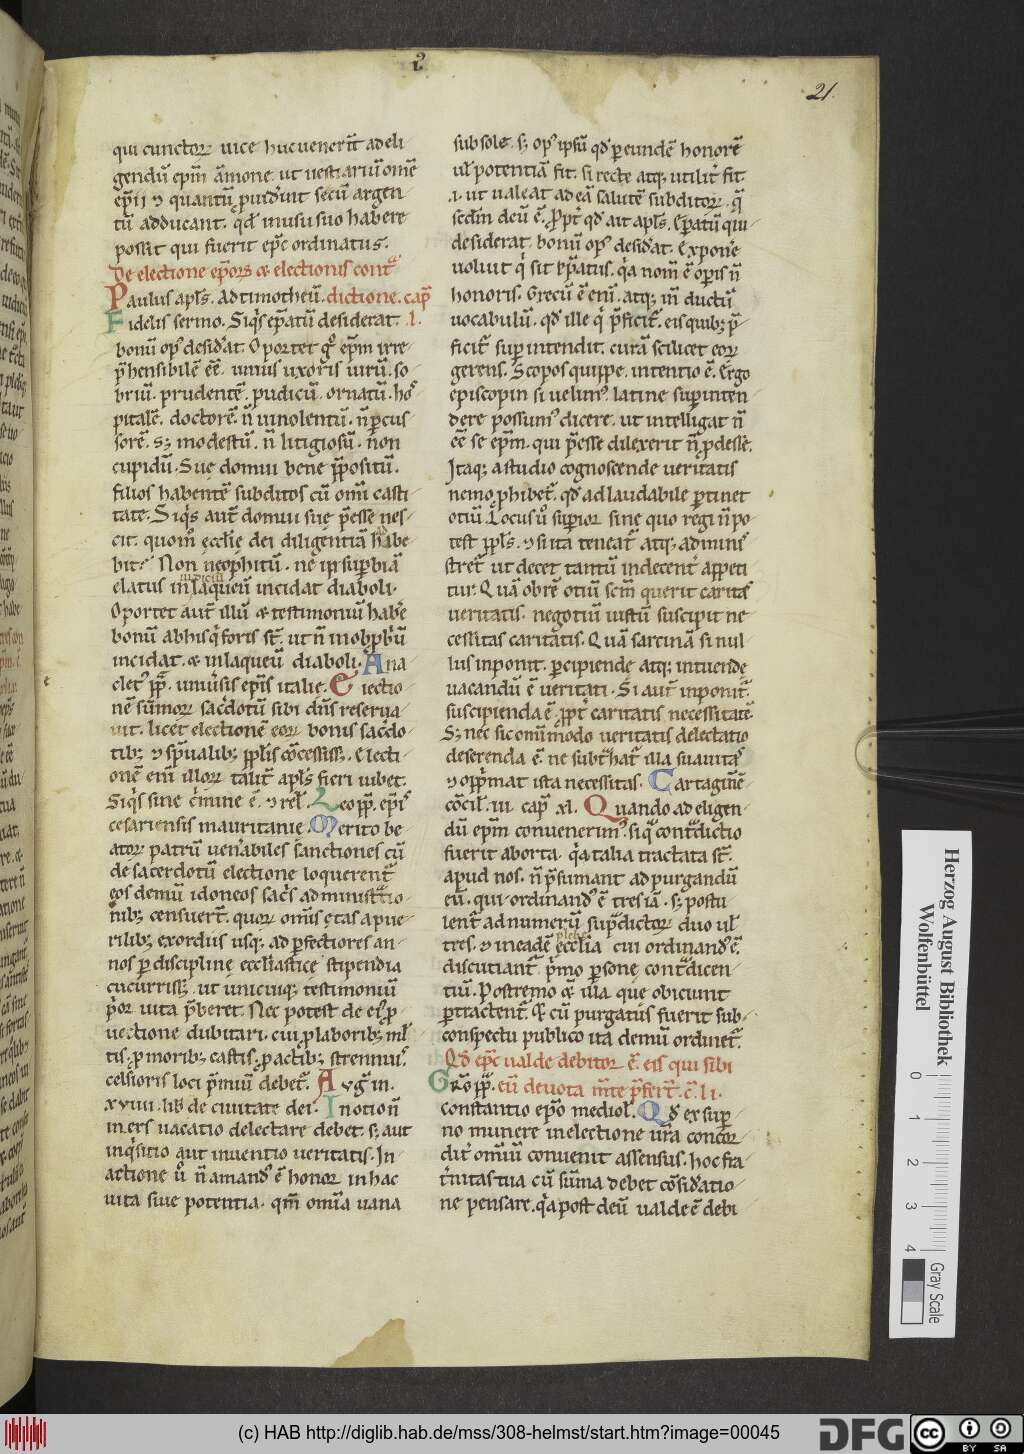 21.
qui cunctoꝝ uice huc uenerīt ad eli
gendū ep̄m āmone. ut uestiariū om̄e
ep̄ii ⁊ quantū p̱uid̓int secū argen
tū adducant. q̄d in usu suo habere
possit qui fuerit ep̄c ordinatus.
De electione ep̄oꝝ & electionis cont̄
Paulus apl̄s. Ad timotheū. dictione. cap̄
Fidelis sermo. Siq̇s ep̄atū desiderat. .l.
bonū op̓ desid̓at. Oportet g̊ ep̄m irre
p̄hensibilē ēē. unius uxoris uirū. so
briū. prudentē. pudicū. ornatū. hos
pitalē. doctorē. n̄ uinolentū. n̄ ꝑcus
sorē. sꝫ modestū. n̄ litigiosū. non
cupidū. Suę domui bene p̄positū.
filios habentē subditos cū om̄i casti
tate. Siq̇s aut̄ domui suę p̄esse nes
cit. quom̊ ęcclię dei diligentiā habe
bit? Non neophitū. ne in sup̱biā
elatus in laqueū incidat diaboli.
iudiciū
Oportet aut̄ illū & testimoniū habe
bonū ab his q̇ foris st̄. ut n̄ in obp̱b̓ū
incidat. & in laqueū diaboli. Ana
clet̓ pp̄. uniūsis ep̄is italię. Eiectio
nē sūmoꝝ sac̓dotū sibi dn̄s reserua
uit. licet electionē eoꝝ bonis sac̓do
tibꝫ ⁊ sp̄ualibꝫ pp̱lis cōcessissꝫ. Electi
onē eni illoꝝ talit̄ apl̄s fieri iubet.
Siq̇s sine c̓mine ē. ⁊ rel̄. Leo pp̄. ep̄is
cesariensis mauritanię. Merito be
atoꝝ patrū uen̓abiles sanctiones cū
de sacerdotū electione loquerent̄
eos demū idoneos sac̓s administ̄tio
nibꝫ censuert̄. quoꝝ om̄is ętas a pue
rilibꝫ exordiis usqꝫ ad ꝑfectiores an
nos ꝑ disciplinę eccl̄iasticę stipendia
cucurrissꝫ. ut unicuiqꝫ testimoniū
p̓or uita p̄beret. Nec potest de ei̓ p̱
uectione dubitari. cui p̱ laboribꝫ ml̄
tis. p̱ moribꝫ castis. p̱ actibꝫ strennuis.
celsioris loci p̄miū debet̄. Avḡ in.
xviiii. lib̄ de ciuitate dei. In otio n̄
in.ers uacatio delectare debet. sꝫ aut
inq̇sitio aut inuentio ueritatis. In
actione ů n̄ amand̓ ē honor in hac
uita siue potentia. qm̄ om̄ia uana
sub sole. sꝫ op̓ ipsū qd̓ ꝑ eundē honorē
ul̄ potentiā fit. si recte atqꝫ utilit̄ fit
.i. ut ualeat ad eā salutē subditoꝝ. q̄
scdm deū ē. P̱pt̓ qd̓ ait apl̄s. Ep̄atū qui
desiderat. bonū op̓ desid̓at. Expone
uoluit q̇ sit ep̄patus. q̇a nom̄ ē op̱is n̄
honoris. Grecū ē eni. atqꝫ in̄ ductū
uocabulū. qd̓ ille q̇ p̄ficit̄. eis quibꝫ p̄
ficit̄ sup̱intendit. curā scilicet eoꝝ
gerens. Scopos quippe. intentio ē. Ergo
episcopin si uelim̓. latine sup̱inten
dere possum̓ dicere. ut intelligat n̄
ēē se ep̄m. qui p̄esse dilexerit n̄ p̱desse.
Itaqꝫ a studio cognoscende ueritatis
nemo p̱hibet̄. qd̓ ad laudabile ꝑtinet
otiū. Locus ů sup̱ior sine quo regi n̄ po
test pp̱ls. ⁊ si ita teneat̄ atqꝫ adminis
stret̄ ut decet tantū indecent̄ appeti
tur. Quā obrē otiū scm̄ querit caritas
ueritatis. negotiū iustū suscipit ne
cessitas caritatis. Quā sarcinā si nul
lus inponit. ꝑcipiende atqꝫ intuende
uacandū ē ueritati. Si aut̄ inponit̄.
suscipienda ē. p̱pt̓ caritatis necessitatē.
Sꝫ nec sic om̄imodo ueritatis delectatio
deserenda ē. ne subt̓hat̄ illa suauitas
⁊ opp̓mat ista necessitas. Cartaginē
cōcil̄. iii. cap̄ xl. Quando ad eligen
dū ep̄m convenerim̓. siq̄ cont̄dictio
fuerit aborta. q̇a talia tractata st̄.
apud nos. n̄ p̄sumant ad purgandū
eū. qui ordinand̓ ē tres iā. sꝫ postu
lent̄ ad numerū sup̄dictoꝝ duo ul̄
tres. ⁊ in eadē eccl̄ia cui ordinand̓ ē.
plebe
discutiant̄ p̓mo ꝑsonę cont̄dicen
tiū. Postremo & illa quę obiciunt
ꝑtractent̄. & cū purgatus fuerit sub
conspectu publico ita demū ordinet̄.
Qd̓ ep̄c ualde debitor ē. eis qui sibi
Grōr̄ pp̄. eū deuota m̄te p̄ferīt̄. c̄. li.
constantio ep̄o mediol̄. Qd̓ ex sup̱
no munere in electione ur̄a concor
dit̓ om̄iū conuenit assensus. hoc fra
t̓nitas tua cū sūma debet cōsid̓atio
ne pensare. q̇a post deū ualde ē debi
Herzog August Bibliothek
Wolfenbüttel
0 1 2 3 4
Gray Scale
(c) HAB http://diglib.hab.de/mss/308-helmst/start.htm?image=00045
DFG
cc BY SA